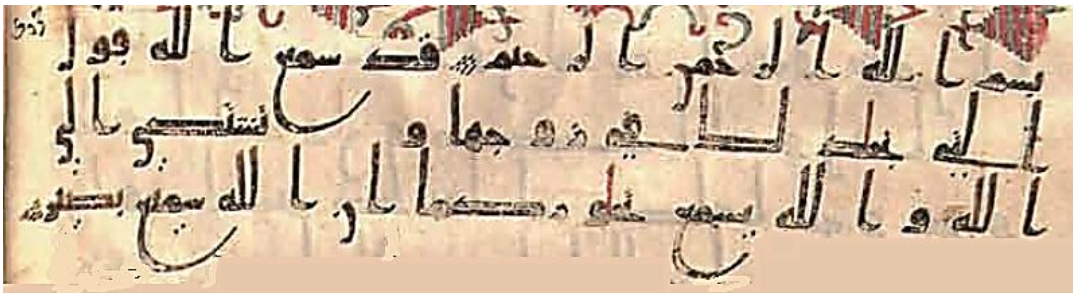 بسم الله الرحمن الرحيم قد سمع الله قول
التي تجدلك في زوجها وتشتكي الى
الله والله يسمع تحوركما ان الله سميع بصير